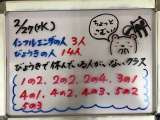 2/27(水)
ちょっと
さむい
インフルエンザの人 3人
びょうきの人 14人
びょうきで休んでいる人がいないクラス
1の2. 2の2. 2の4. 3の1
4の1. 4の2. 4の3. 5の2
5の3